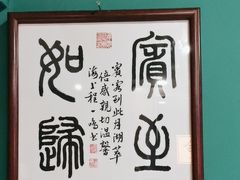 賓至
如歸
賓客到此月湖萃
倍感親切溫馨
海上程一鳴書